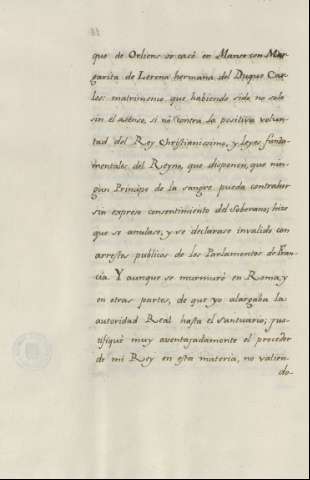 que de Orliens se casó en Manse con Mar-
garita de Lorena hermana del Duque Car-
los: matrimonio que habiendo sido no solo
sin el asenso, si no contra la positiva volun-
tad del Rey Christianissimo, y Leyes funda-
mentales del Reyno, que disponen, que nin-
gun Principe de la sangre pueda contraher
sin expreso consentimiento del Soberano; hize
que se anulase, y se declarase invalido con
arrestos publicos de los Parlamentos de Fran-
cia. Y aunque se murmuró en Roma, y
en otras partes, de que yo alargaba la
autoridad Real hasta el santuario; jus-
tifiqué muy aventajadamente el proceder
de mi Rey en esta materia, no valien-
do-